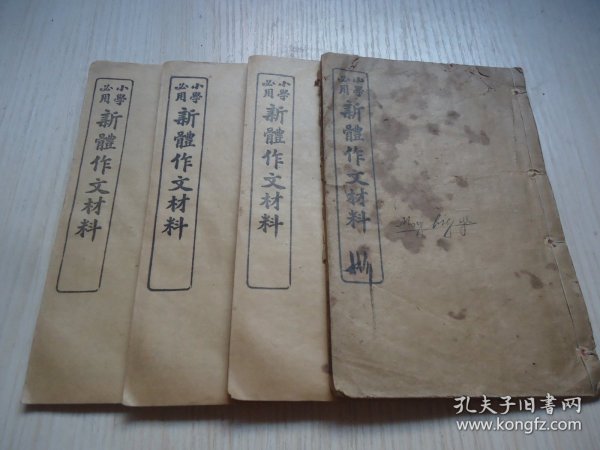 小學必用
新體作文材料
小學必用
新體作文材料
小學必用
新體作文材料
小學必用
新體作文材料
孔夫子旧书网
www.kongfz.com